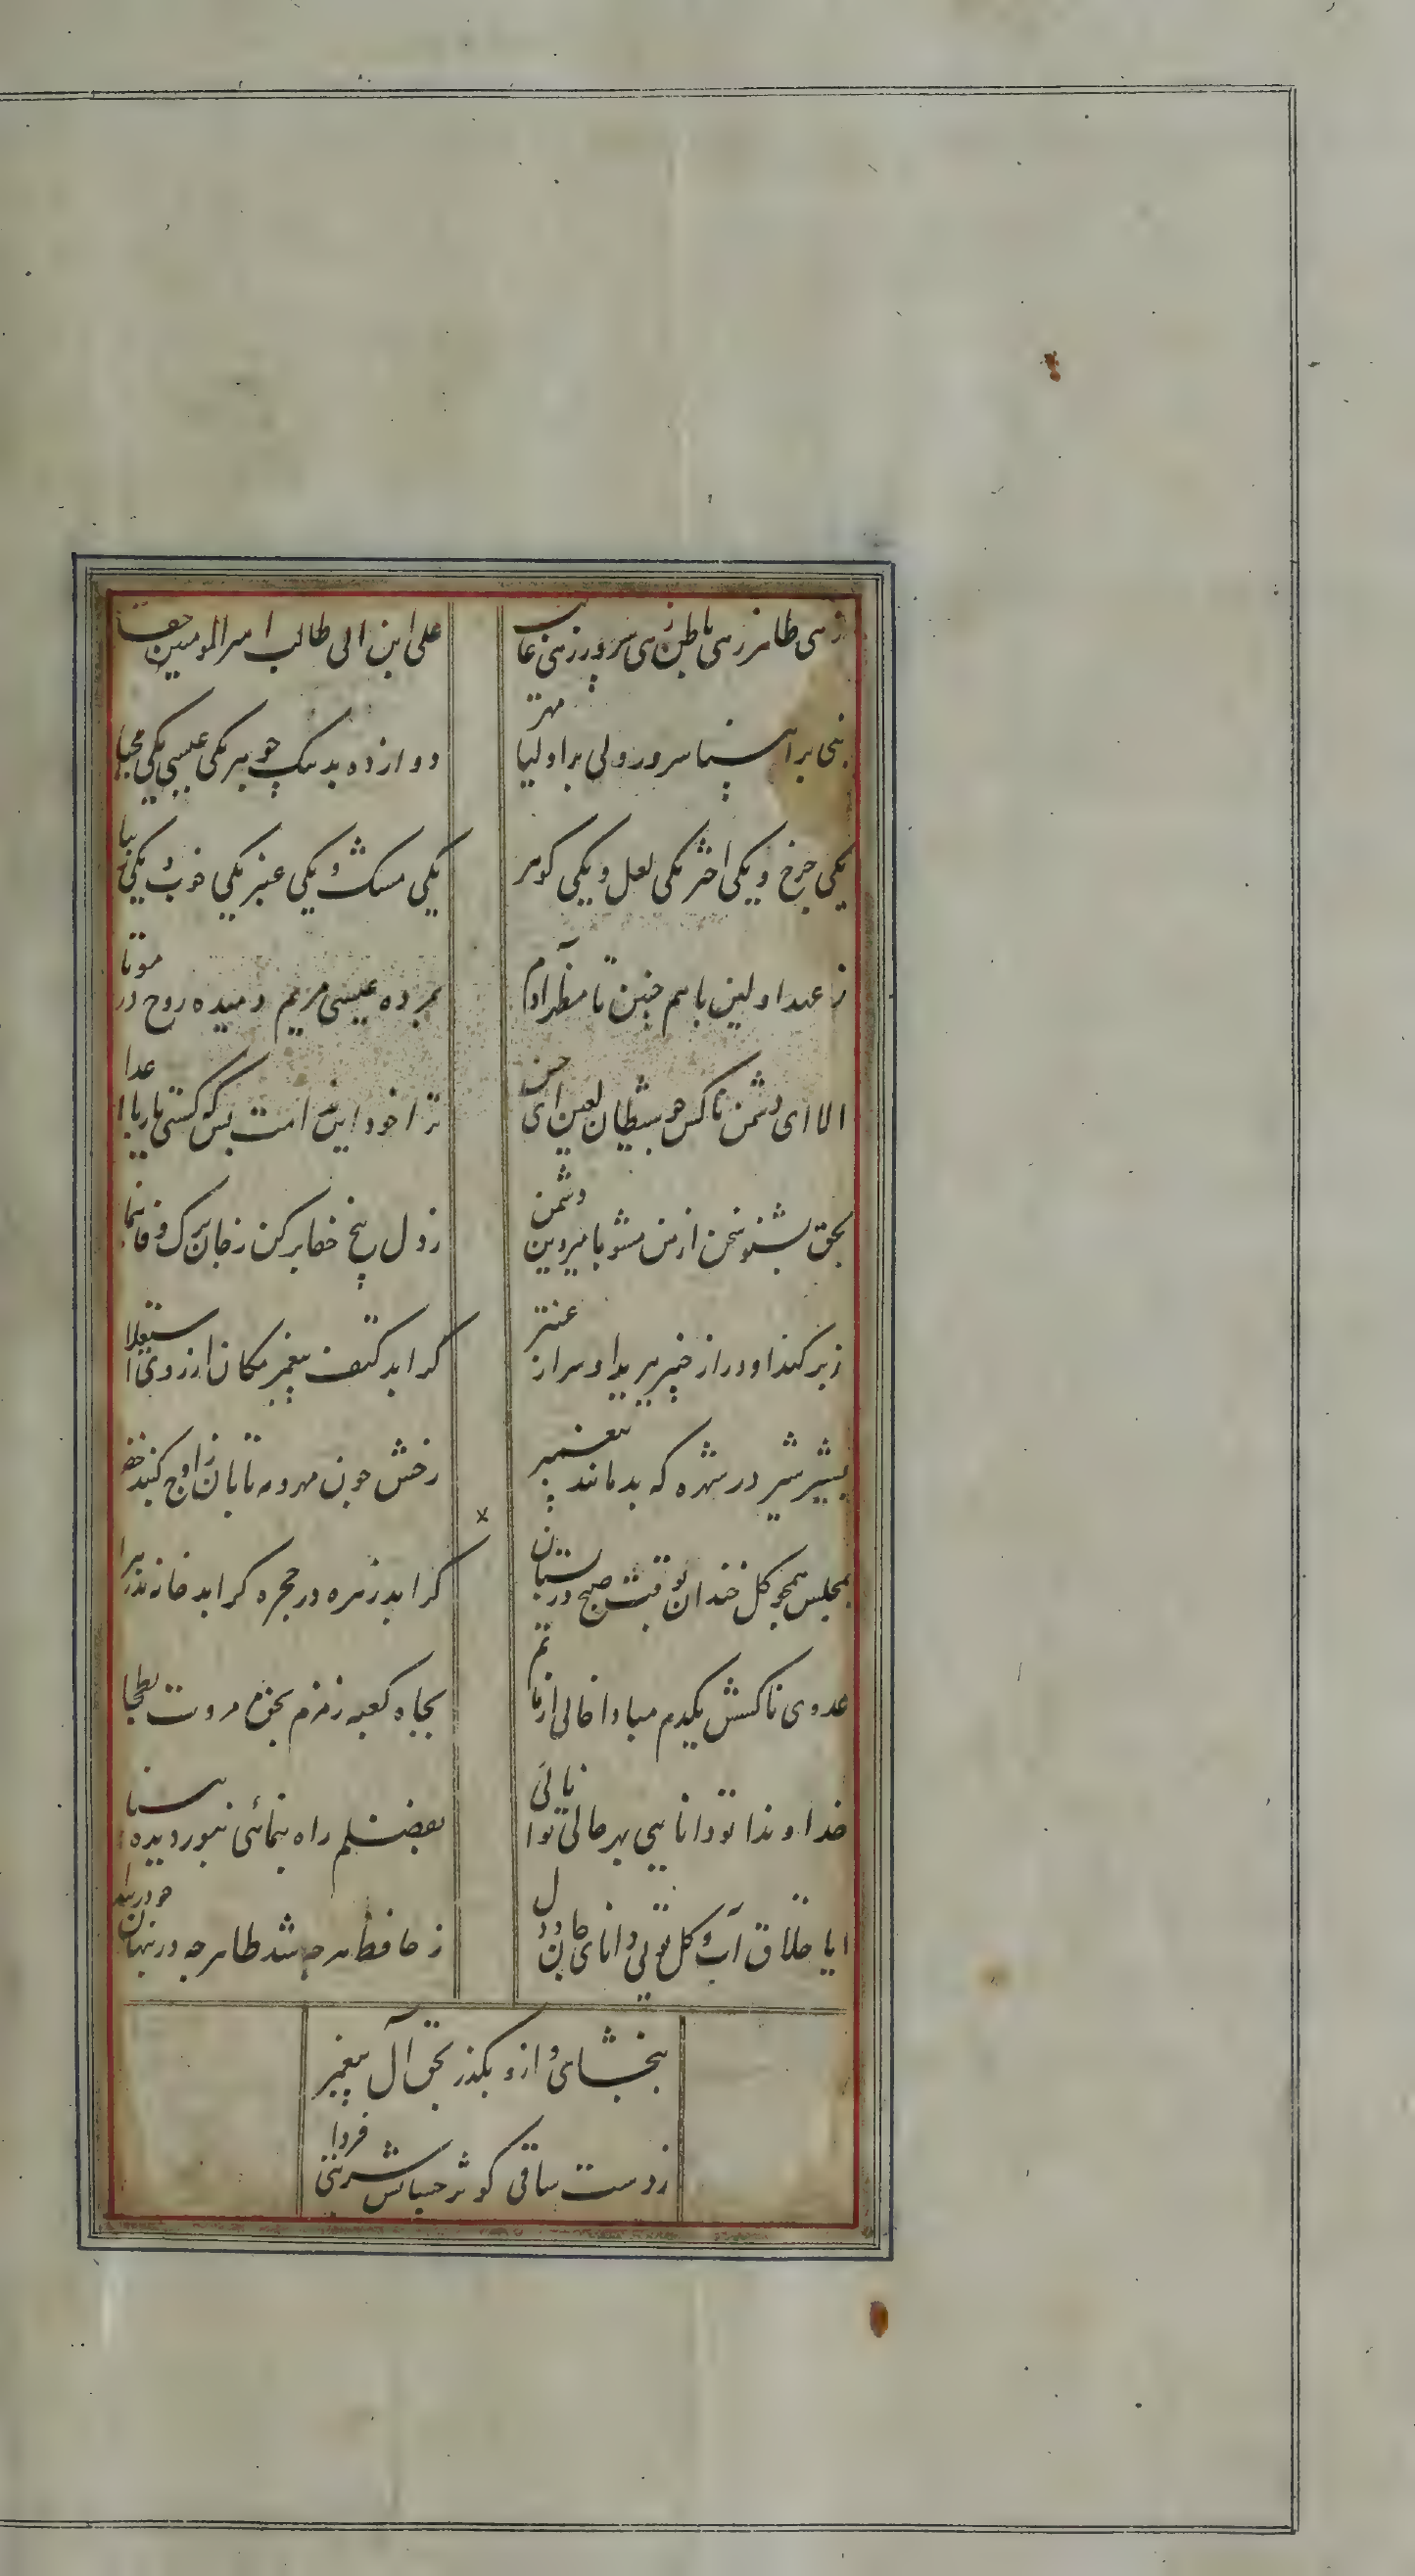 زهی طاهر زهی باطن زهی سرور زهی غالب
علی ابن ابی طالب امیرالمومنین حقا
نبی بر انبیا سرور ولی بر اولیا مهتر
دوازده بد یک جوهر یکی عیسی یکی
یکی چرخ و یکی اختر یکی لعل و یکی کوهر
یکی مسک و یکی عنبر یکی خوب و یکی
ز عهد اولین باهم چنین تا مظهر آدم
بمرده عیسی مریم دمیده روح در موتا
الا ای دشمن ناکس چو شیطان لعین ای
ترا خود این امت بس که کشتی یار با اعدا
بحق بشنو سخن از من مشو با میر دین دشمن
ز دل بیخ خطا برکن ز جان برک وفا بنما
ز بر کند او در از خیبر برید او سر از عنتر
کرا بد کتف پیغمبر مکان از روی استعلا
بشیر شیر در شهره که بد مانند پیغمبر
رخش چون مهر و مه تابان ز اوج کنبد خضرا
بمجلس همچو کل خندان بوقت صبح در بستان
کرا بد زهره در حجره کرا بد خانه
عدوی ناکسش یکدم مبادا خالی از ماتم
بجاه کعبه زمزم بحق مروت بطحا
خداوندا تو دانایی بهر حالی توانائی
بفضلم راه بنمائی بنور دیده بینا
ایا خلاق آب و کل توئی دانای جان و دل
ز حافظ هر چه شد ظاهر چه در پنهان
ببخشای و ازو بکذر بحق آل پیغمبر
ز دست ساقی کوثر چشانش شربتی فردا